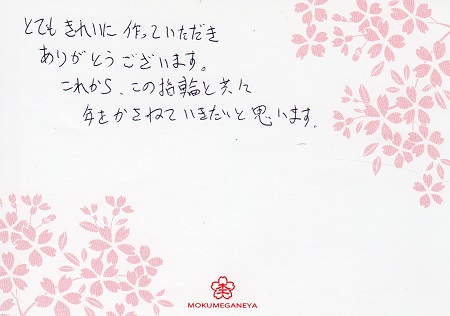 とてもきれいに作っていただき
ありがとうございます。
これから、この指輪と共に
年をかさねていきたいと思います。
MOKUMEGANEYA